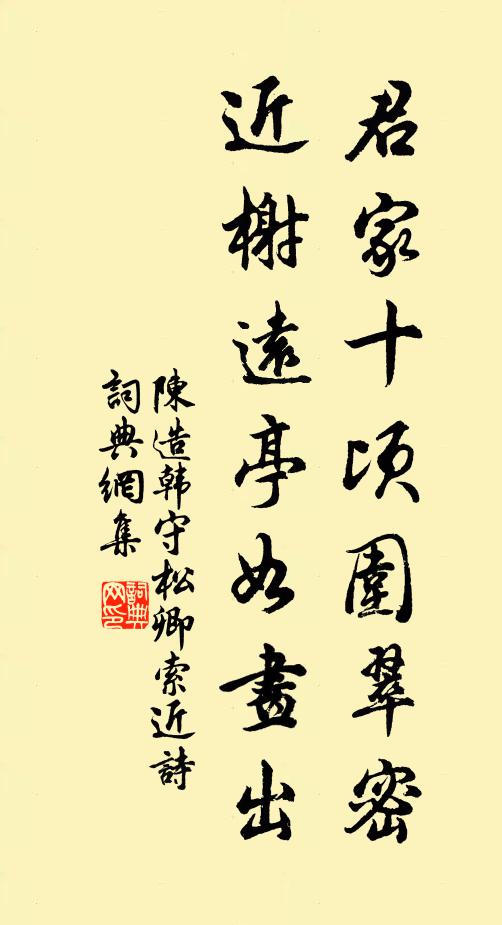 君家十頃圍翠密
近榭遠亭如畫出
陳造韩守松卿索近詩
詞典網集
詞典
网印